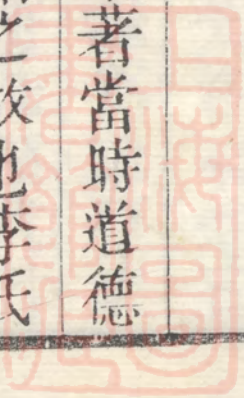 著當時道德
之故也李氏